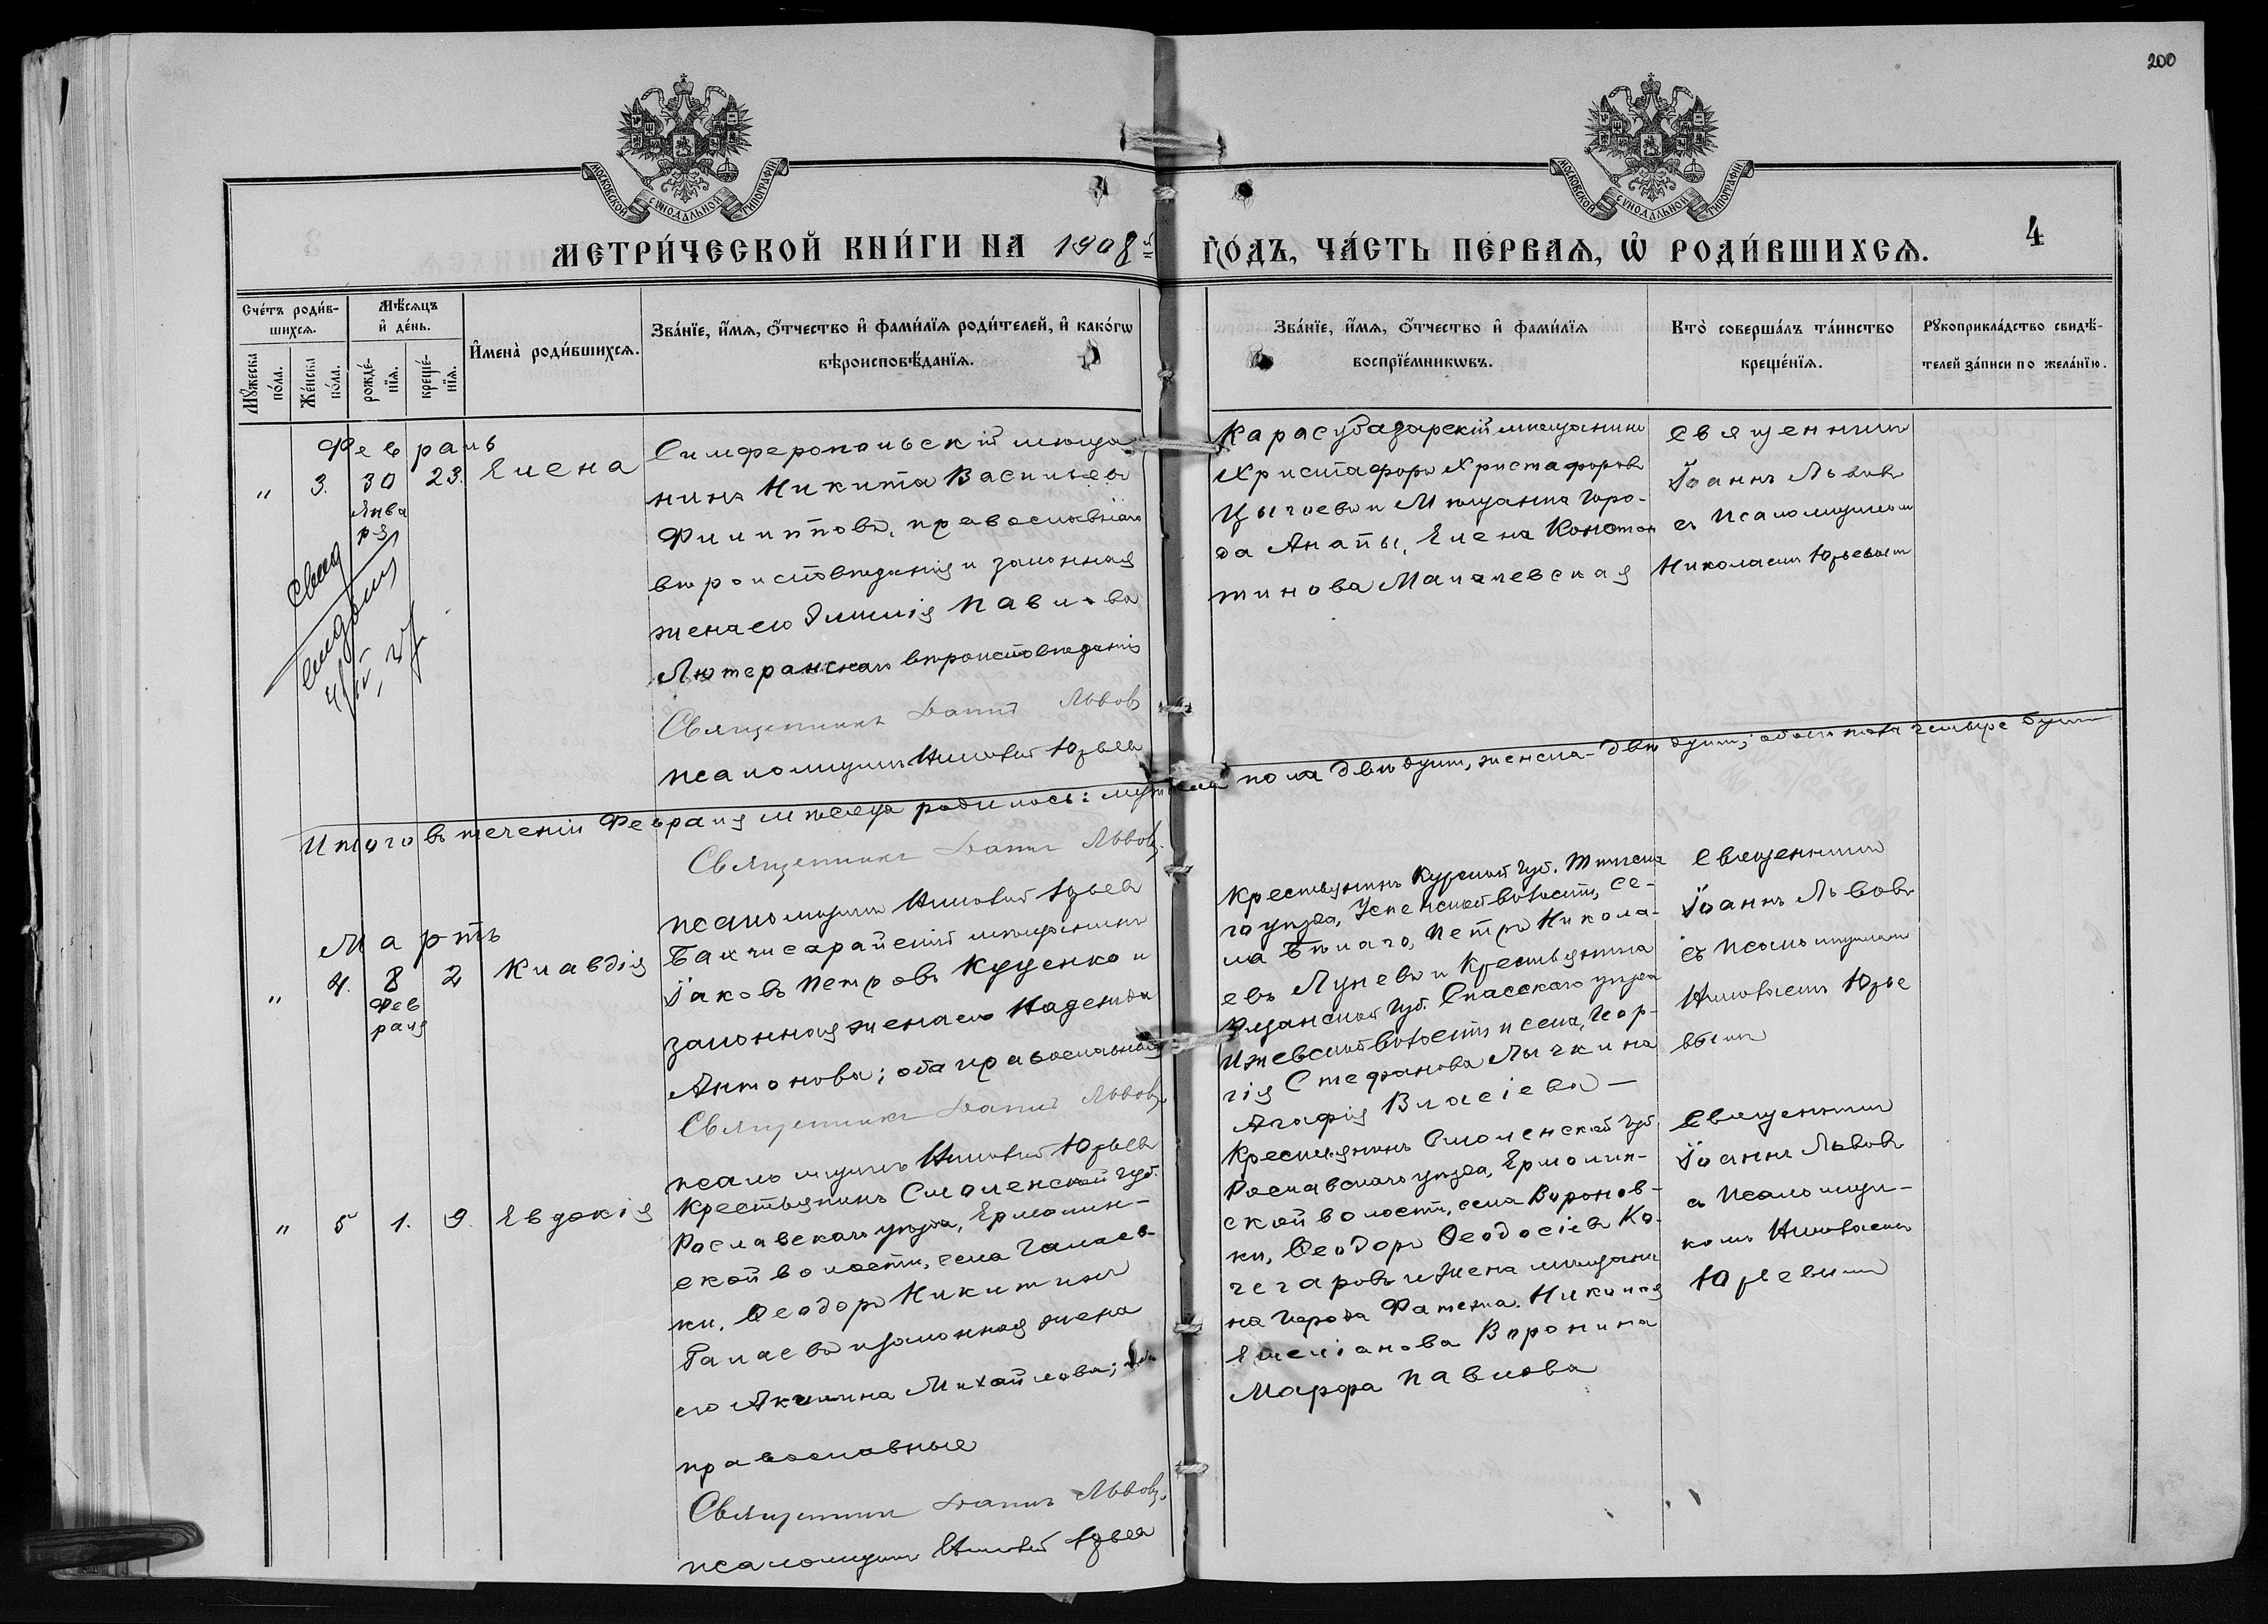 200
МОСКОВСКОЙ СѴНОДАЛЬНОЙ ТИПОГРАФІИ
МОСКОВСКОЙ СѴНОДАЛЬНОЙ ТИПОГРАФІИ
МЕТРИ́ЧЕСКОЙ КНИ́ГИ НА 1908й ГО́ДЪ, ЧА́СТЬ ПЕ́РВАЯ, Ѡ҆ РОДИ́ВШИХСЯ.
4
Сче́тъ роди́вшихся.
Мѣ́сяцъ и҆ де́нь.
Мꙋ́жеска по́ла.
Же́нска по́ла.
рожде́нїя.
креще́нїя.
И҆мена̀ роди́вшихся.
Зва́нїе, и҆́мя, ѻ҆́тчество и҆ фами́лїя роди́телей, и҆ како́гѡ
вѣроисповѣ́данїя.
Зва́нїе, и҆́мя, ѻ҆́тчество и҆ фами́лїя
воспрїе́мникѡвъ.
Кто̀ соверша́лъ та́инство
креще́нїя.
Рꙋкоприкла́дство свидѣ́-
телей за́писи по жела́нїю.
Февраль
" 3. 30 23. Елена
Янва
ря
Симферопольскій мѣща
нинъ Никита Васильевъ
Филипповъ, православнаго
вѣроисповѣданія и законная
жена его Эмилія Павлова
Лютеранскаго вѣроисповѣданія
Священникъ Іоаннъ Львовъ
псаломщикъ Николай Юрьевъ
Карасубазарскій мѣщанинъ
Христофоръ Христофоровъ
и Мѣщанка горо-
да Анапы, Елена Констан
тинова
Священникъ
Іоаннъ Львовъ
съ Псаломщикомъ
Николаемъ Юрьевымъ
Итого въ теченіи Февраля мѣсяца родилось: мужска пола двѣ души, женска - двѣ души; обоего пола четыре души
Священникъ Іоаннъ Львовъ
псаломщикъ Николай Юрьевъ
Мартъ
" 4. 8 2 Клавдія
Фев
раля
Бахчисарайскій мѣщанинъ
Іаковъ Петровъ Куценко и
законная жена его Надежда
Антонова; оба православные
Священникъ Іоаннъ Львовъ
псаломщикъ Николай Юрьевъ
Крестьянинъ Курской губ. Тимска
го уѣзда, Успенской волости, се-
ла Бѣлаго, Петръ Никола-
евъ Луневъ и Крестьянка
Рязанской губ. Спасскаго уѣзда
Ижевской волости и села, Геор-
гія Стефанова Лычкина
Агафія Власіева —
Священникъ
Іоаннъ Львовъ
съ Псаломщикомъ
Николаемъ Юрье
вымъ
" 5 1. 9. Евдокія
Крестьянинъ Смоленской губ.
Рославскаго уѣзда, Ермолин-
ской волости, села Галаев-
ки, Ѳеодоръ Никитинъ
Галаевъ и законная жена
его Акилина Михайлова; оба
православные
Священникъ Іоаннъ Львовъ
псаломщикъ Николай Юрьевъ
Крестьянинъ Смоленской губ.
Рославскаго уѣзда, Ермолин-
ской волости, села Воронов-
ки, Ѳеодоръ Ѳеодосіевъ Ко-
чегаровъ и жена мѣщани
на города Фатежа. Николая
Емеліанова Воронина
Марфа Павлова
Священникъ
Іоаннъ Львовъ
съ Псаломщи-
комъ Николаемъ
Юрьевымъ